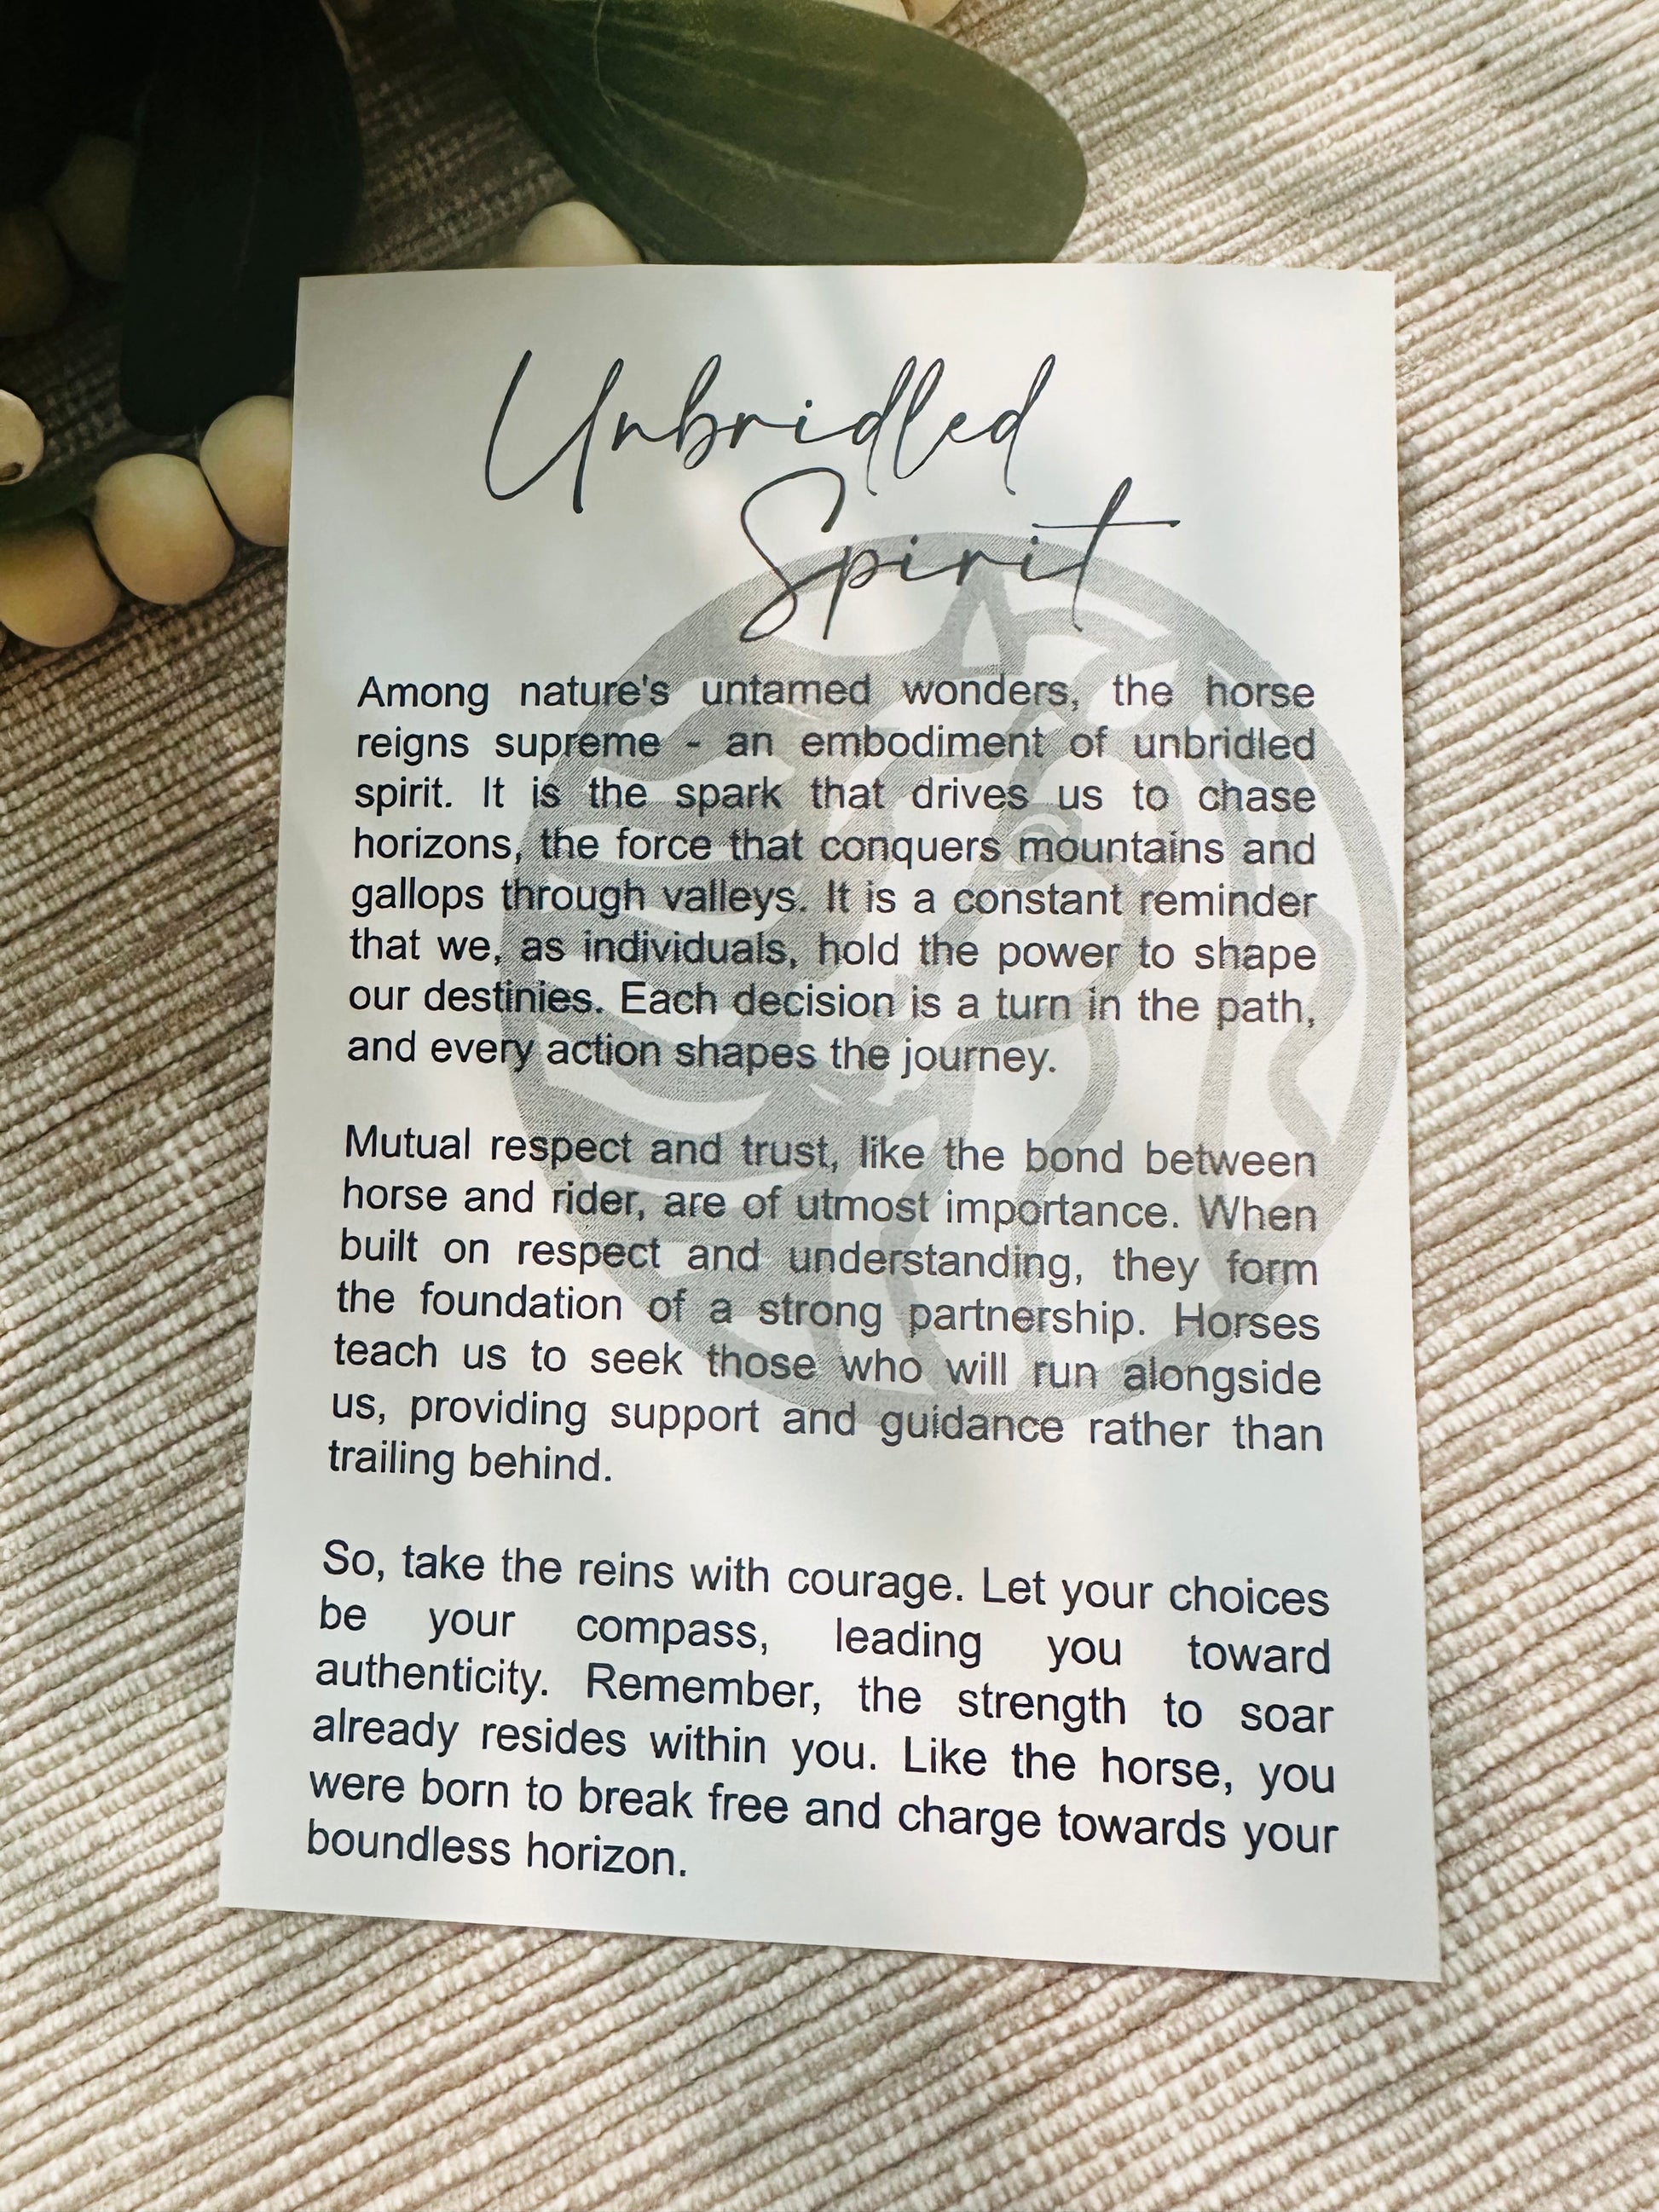 Unbridled
Spirit
Among nature's untamed wonders, the horse
reigns supreme - an embodiment of unbridled
spirit. It is the spark that drives us to chase
horizons, the force that conquers mountains and
gallops through valleys. It is a constant reminder
that we, as individuals, hold the power to shape
our destinies. Each decision is a turn in the path,
and every action shapes the journey.
Mutual respect and trust, like the bond between
horse and rider, are of utmost importance. When
built on respect and understanding, they form
the foundation of a strong partnership. Horses
teach us to seek those who will run alongside
us, providing support and guidance rather than
trailing behind.
So, take the reins with courage. Let your choices
be your compass, leading you toward
authenticity. Remember, the strength to soar
already resides within you. Like the horse, you
were born to break free and charge towards your
boundless horizon.